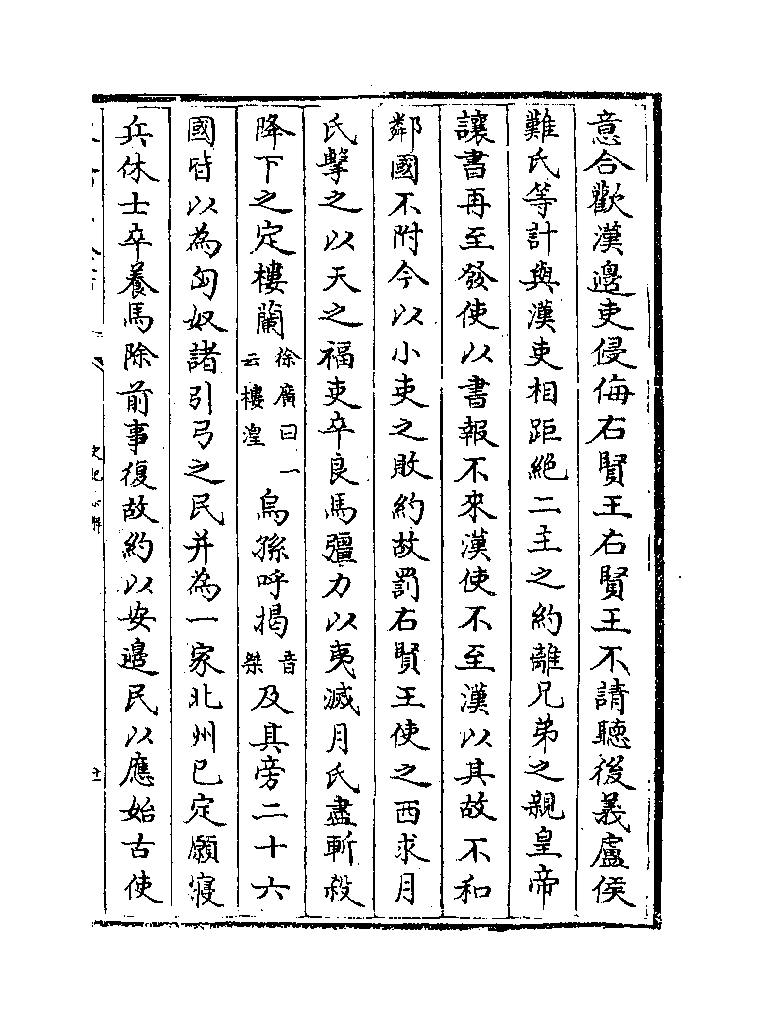 意合歡漢邊吏侵侮右賢王右賢王不請聽後義盧侯
難氏等計與漢吏相距絶二主之約離兄弟之親皇帝
讓書再至發使以書報不來漢使不至漢以其故不和
鄰國不附今以小吏之敗約故罰右賢王使之西求月
氏擊之以天之福吏卒良馬彊力以夷滅月氏盡斬殺
降下之定樓蘭徐廣曰一云樓湟烏孫呼揭音桀及其旁二十六
國皆以為匈奴諸引弓之民并為一家北州已定願寢
兵休士卒養馬除前事復故約以安邊民以應始古使